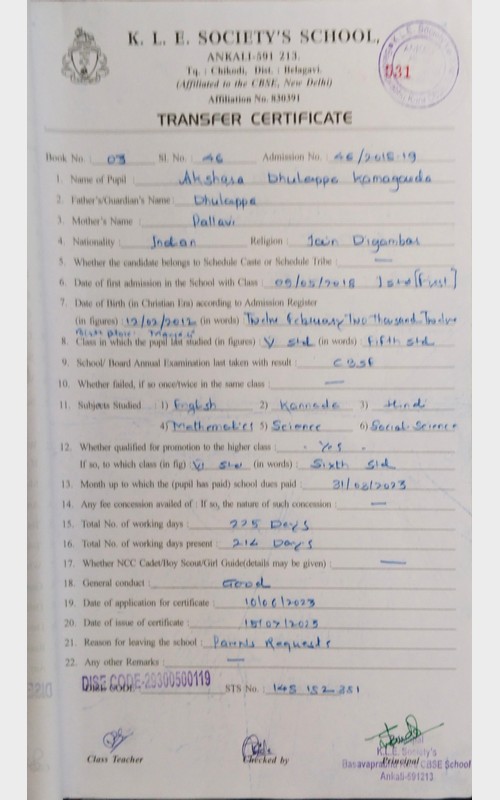 K. L. E. SOCIETY'S SCHOOL,
ANKALI-591 213.
Tq. : Chikodi, Dist. : Belagavi.
(Affiliated to the CBSE, New Delhi)
Affiliation No. 830391
931
TRANSFER CERTIFICATE
Book No. 03 Sl. No. 46 Admission No. 46/2018-19
1. Name of Pupil : Akshara Dhulappa Kamagouda
2. Father's/Guardian's Name : Dhulappa
3. Mother's Name : Pallavi
4. Nationality : Indian Religion : Jain Digambar
5. Whether the candidate belongs to Schedule Caste or Schedule Tribe : —
6. Date of first admission in the School with Class : 09/05/2018 1 std [First]
7. Date of Birth (in Christian Era) according to Admission Register
(in figures) : 12/02/2012 (in words) Twelve February Two thousand Twelve
Birth place:
8. Class in which the pupil last studied (in figures) V std (in words) : Fifth std
9. School/ Board Annual Examination last taken with result : CBSE
10. Whether failed, if so once/twice in the same class : —
11. Subjects Studied : 1) English 2) Kannada 3) Hindi
4) Mathematics 5) Science 6) Social-Science
12. Whether qualified for promotion to the higher class : - Yes -
If so, to which class (in fig) VI std (in words) : Sixth std
13. Month up to which the (pupil has paid) school dues paid : 31/03/2023
14. Any fee concession availed of : If so, the nature of such concession : —
15. Total No. of working days : 225 Days
16. Total No. of working days present : 214 Days
17. Whether NCC Cadet/Boy Scout/Girl Guide(details may be given) : —
18. General conduct : Good
19. Date of application for certificate : 10/06/2023
20. Date of issue of certificate : 15/07/2023
21. Reason for leaving the school : Parents Requests
22. Any other Remarks : —
DISE CODE-29300500119
STS No. : 145 152 351
Class Teacher Checked by Principal
K.L.E. Society's
CBSE School
Ankali-591213.